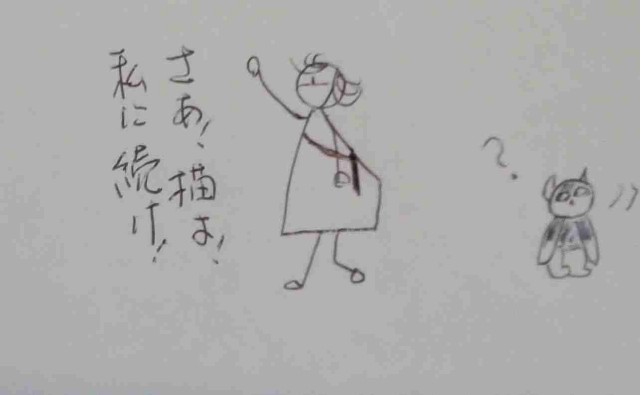 さあ！描け！
私に続け！
?